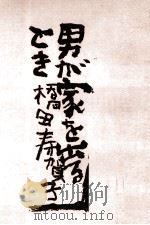 男が家を出る
とき
橋田寿賀子